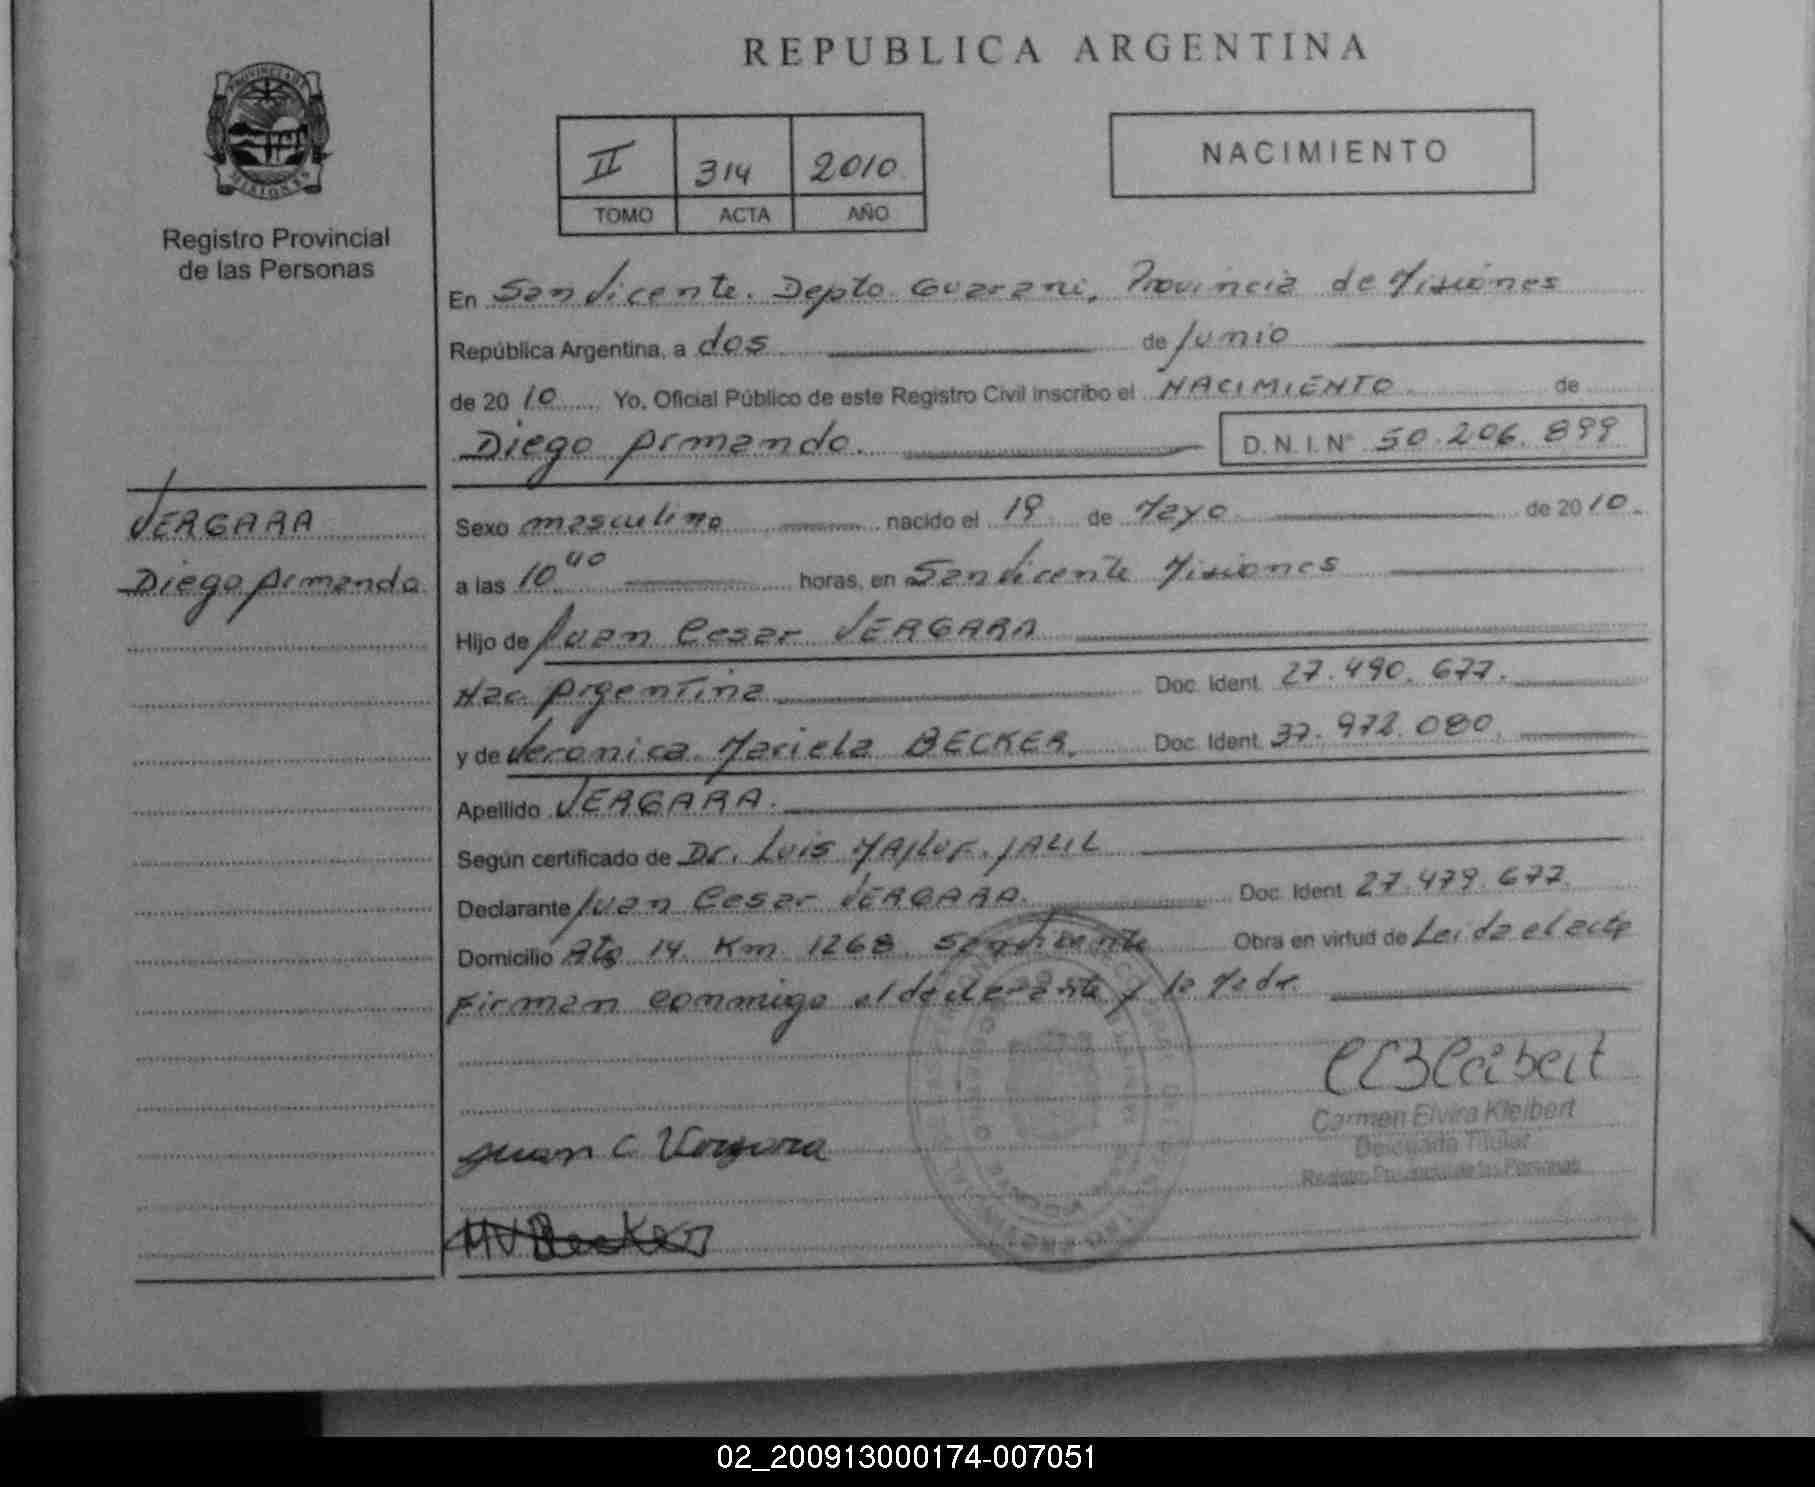 REPUBLICA ARGENTINA
PROVINCIA DE
MISIONES
Registro Provincial
de las Personas
II 314 2010
TOMO ACTA AÑO
NACIMIENTO
En San Vicente. Depto. Guarani, Provincia de Misiones
República Argentina, a dos de Junio
de 20 10 Yo, Oficial Público de este Registro Civil inscribo el NACIMIENTO de
Diego Armando. D.N.I.Nº 50.206.899
VERGARA
Diego Armando
Sexo masculino nacido el 19 de Mayo de 2010.
a las 10 40 horas, en San Vicente Misiones
Hijo de Juan Cesar VERGARA
Nac. Argentina Doc. Ident. 27.490.677.
y de Veronica Mariela BECKER. Doc. Ident. 37.972.080.
Apellido VERGARA.
Según certificado de Dr. Luis MAJLUF. JALIL
Declarante Juan Cesar VERGARA. Doc. Ident. 27.479.677.
Domicilio Rta 14. Km. 1268. San Vicente Obra en virtud de Leida el acta
Firman conmigo el declarante y la Madr.
CEKleibert
Carmen Elvira Kleibert
Delegada Titular
Registro Provincial de las Personas
Juan C Vergara
MV Becker
02_200913000174-007051